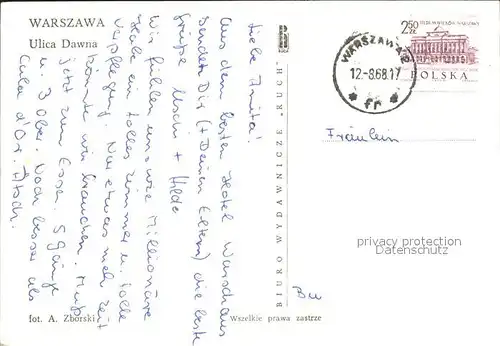 WARSZAWA
Ulica Dawna
Liebe Anita!
Aus dem besten Hotel Warschaus
sendet Dir (+ Deinen Eltern) die beste
Grüße Uschi + Hilde
Wir fühlen uns wie Millionäre
Habe ein tolles Zimmer u. tolle
Verpflegung. Nur etwas mehr Zeit
könnte wir brauchen. Muß
jetzt zum Essen. 5 Gänge
u. 3 Ober. Noch besser als
d'Or.
fot. A. Zborski
BIURO WYDAWNICZE "RUCH"
Wszelkie prawa zastrze
WARSZAWA
12.-8.68.17
fr
2,50
ZŁ
POLSKA
Fräulein
privacy protection
Datenschutz